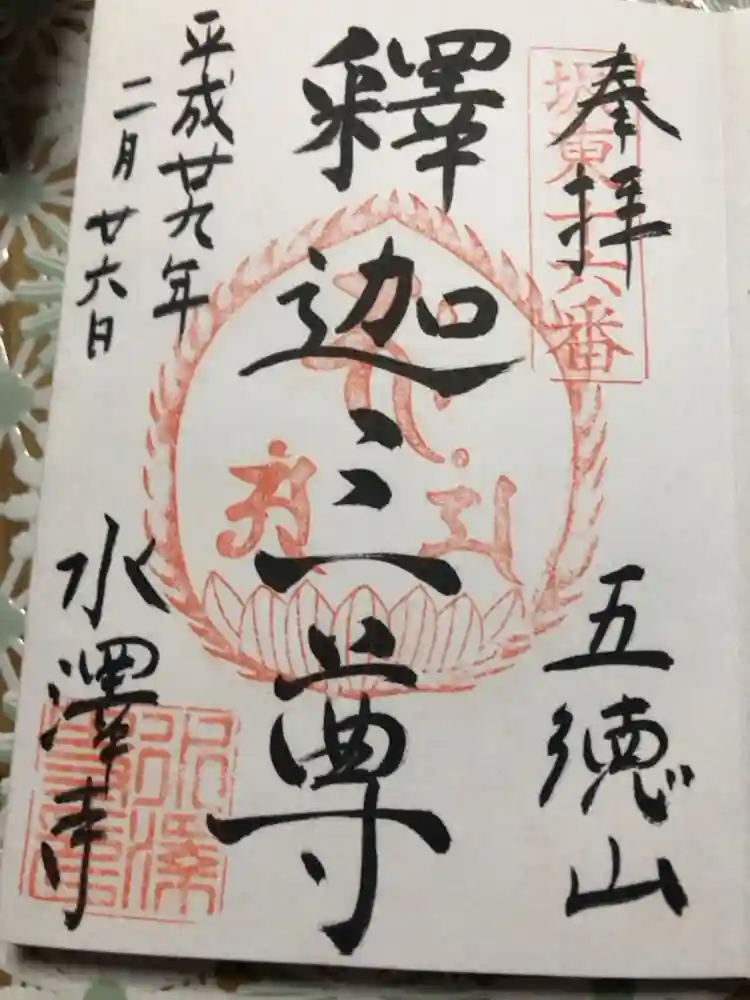 奉拝
坂東十六番
五徳山
釋迦三尊
平成廿九年
二月廿六日
水澤寺